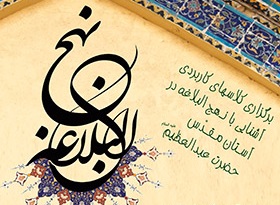 نهج
البلاغه
برگزاری کلاسهای کاربردی
آشنایی با نهج البلاغه در
آستان مقدس
حضرت عبدالعظیم